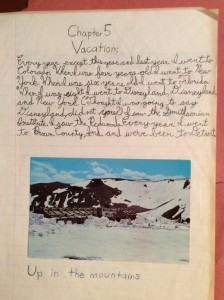 Chapter 5
Vacation;
Every year except this year and last year I went to
Colorado. When I was four years old I went to New
York. When I was six years old I went to Florida.
When I was eight I went to Disneyland, Disneyland
and New York. (Thought I was going to say
Disneyland, did not you? I saw the Smithsonian
Institute. I saw the Redwoods. Every year I went
to Brown County, and and we've been to Detroit.
Up, in the mountains